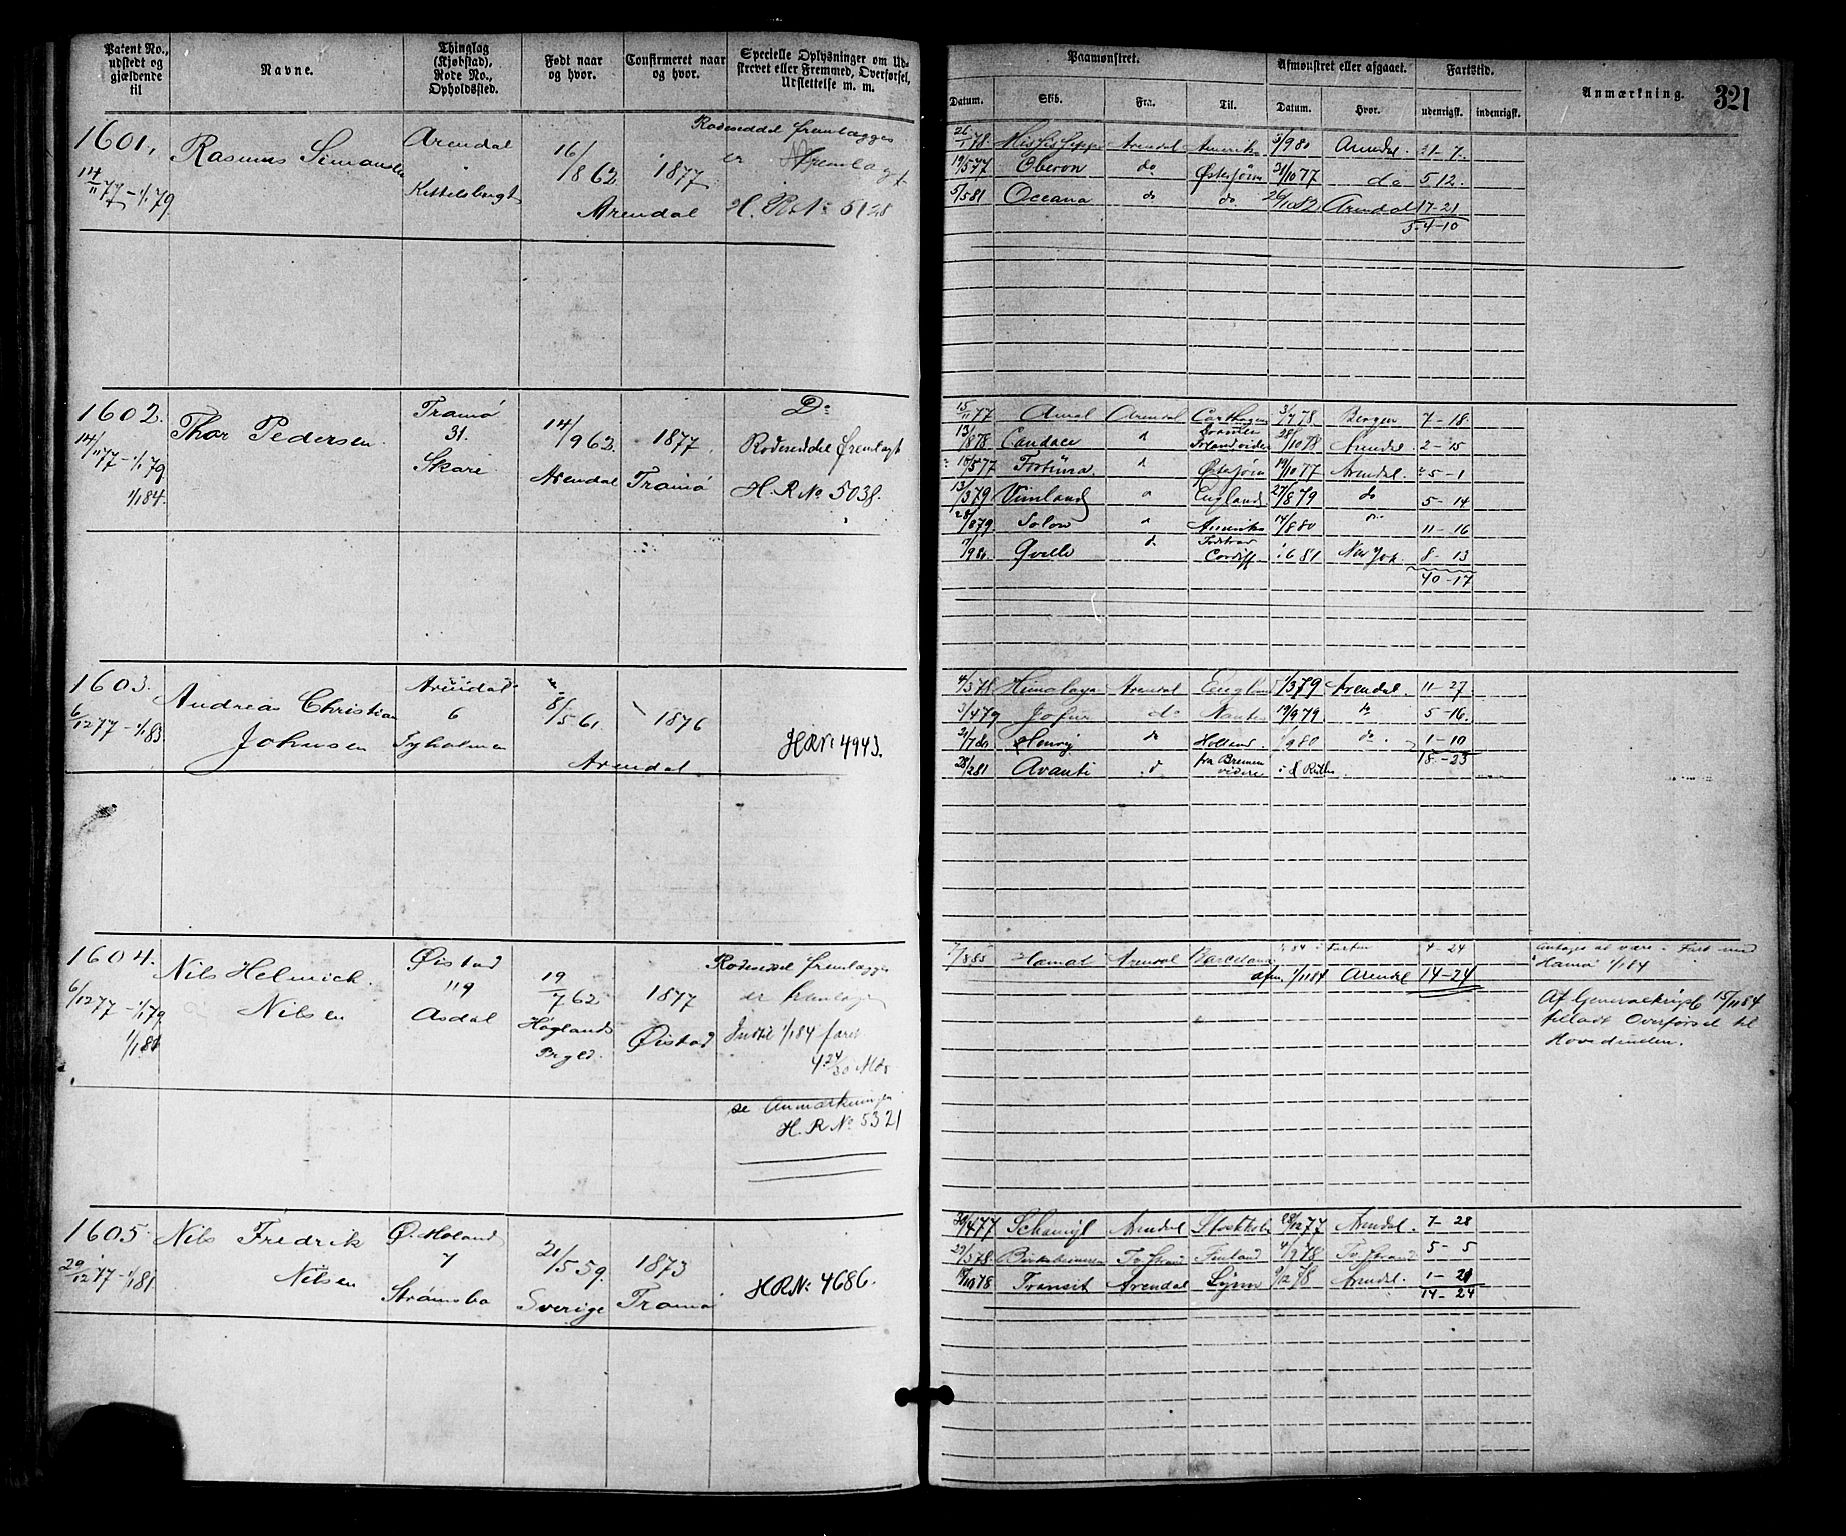 Patent No., udstedt og gjældende til
Navne.
Thinglag (Kjøbstad), Rode No., Opholdssted.
Født naar og hvor.
Confirmeret naar og hvor.
Specielle Oplysninger om Udskrevet eller Fremmed, Overførsel, Udslettelse m. m.
1601.
14/11 77 – 1/1 79.
Rasmus Simonsen
Arendal
Kittelsbugt
16/8 62
Arendal
1877
Rodeseddel fremlægges
er fremlagt
H. R. No 5128
1602.
14/11 77 – 1/1 79
1/1 84.
Thor Pedersen
Tromø
31.
Skare
14/9 62
Arendal
1877
Tromø
Do
Rodeseddel fremlagt
H. R. No 5038.
1603.
6/12 77 – 1/1 83
Andreas Christian
Johnsen
Arendal
6
Tyholmen
8/5 61
1876
Arendal
HRN: 4943.
1604.
6/12 77 – 1/1 79
1/1 81
Nils Helmich
Nilsen
Øistad
119
Asdal
19/7 62
Høglands
Prgld.
1877
Øistad
Rodeseddel fremlægges
er fremlagt
Indtil 1/1 84 faret
4 24/30 Mdr
se Anmærkningen
H. R No 5321
1605.
29/12 77 – 1/1 81
Nils Fredrik
Nilsen
Ø. Moland
7
Strømsbo
21/5 59.
Sverige
1873
Tromø
HRN: 4686.
Paamønstret.
Afmønstret eller afgaaet.
Fartstid.
Anmærkning.
321
Datum.
Skib.
Fra.
Til.
Datum.
Hvor.
udenrigsk.
indenrigsk.
26/1 78. Missisippi Arendal Amerika 5/9 80 Arendal. 21 - 7.
19/5 77 Oberon do Østersjøen 31/10 77 do 5 12.
5/5 81 Oceana do do 26/10 82 Arendal 17 - 21
5-4-10
15/11 77 Arendal 3/7 78 Bergen 7 - 18.
13/8 78 Candace 28/10 78 Arendal 2 - 15
10/5 77 Fortuna Østersjøen 19/10 77 Arendal. 5 - 1
13/3 79 Vinland England 27/8 79 do 5 - 14
28/8 79. Solon Amerika 14/8 80 11 - 16
7/9 80. do Cardiff 6 81 New York. 8 - 13
40 - 17
4/3 78. Himalaya Arendal England 1/3 79 Arendal. 11 - 27
3/4 79 Jofur do Nantes 19/9 79 do 5 - 16.
21/7 80 Henrij do Holland. 1/9 80 do. 1 - 10
18 - 23
28/2 81 Avanti d fra Bremen videre
7/8 85 Hamat Arendal Barcelona 84 i Farten 4 - 24
afm. 1/11 84 Arendal 14 - 24
Antages at være i Fart med
"Hamat" 1/1 84
Af Generalkrigsk 15/11 84
tilladt Overførsel til
Hovedrullen.
30/4 77 Schamyl Arendal Stokholm 18/12 77 Arendal. 7 - 28
29/3 78. Birkebeineren Tvedestrand Finland 4/9 78 Tvedestrand 5 - 5
18/10 78 Transit Arendal Lynn 9/12 78 Arendal. 1 - 21
14 - 24